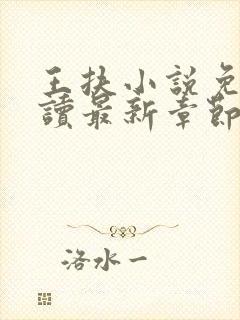 王扶小說免
讀最新章節
洛水一